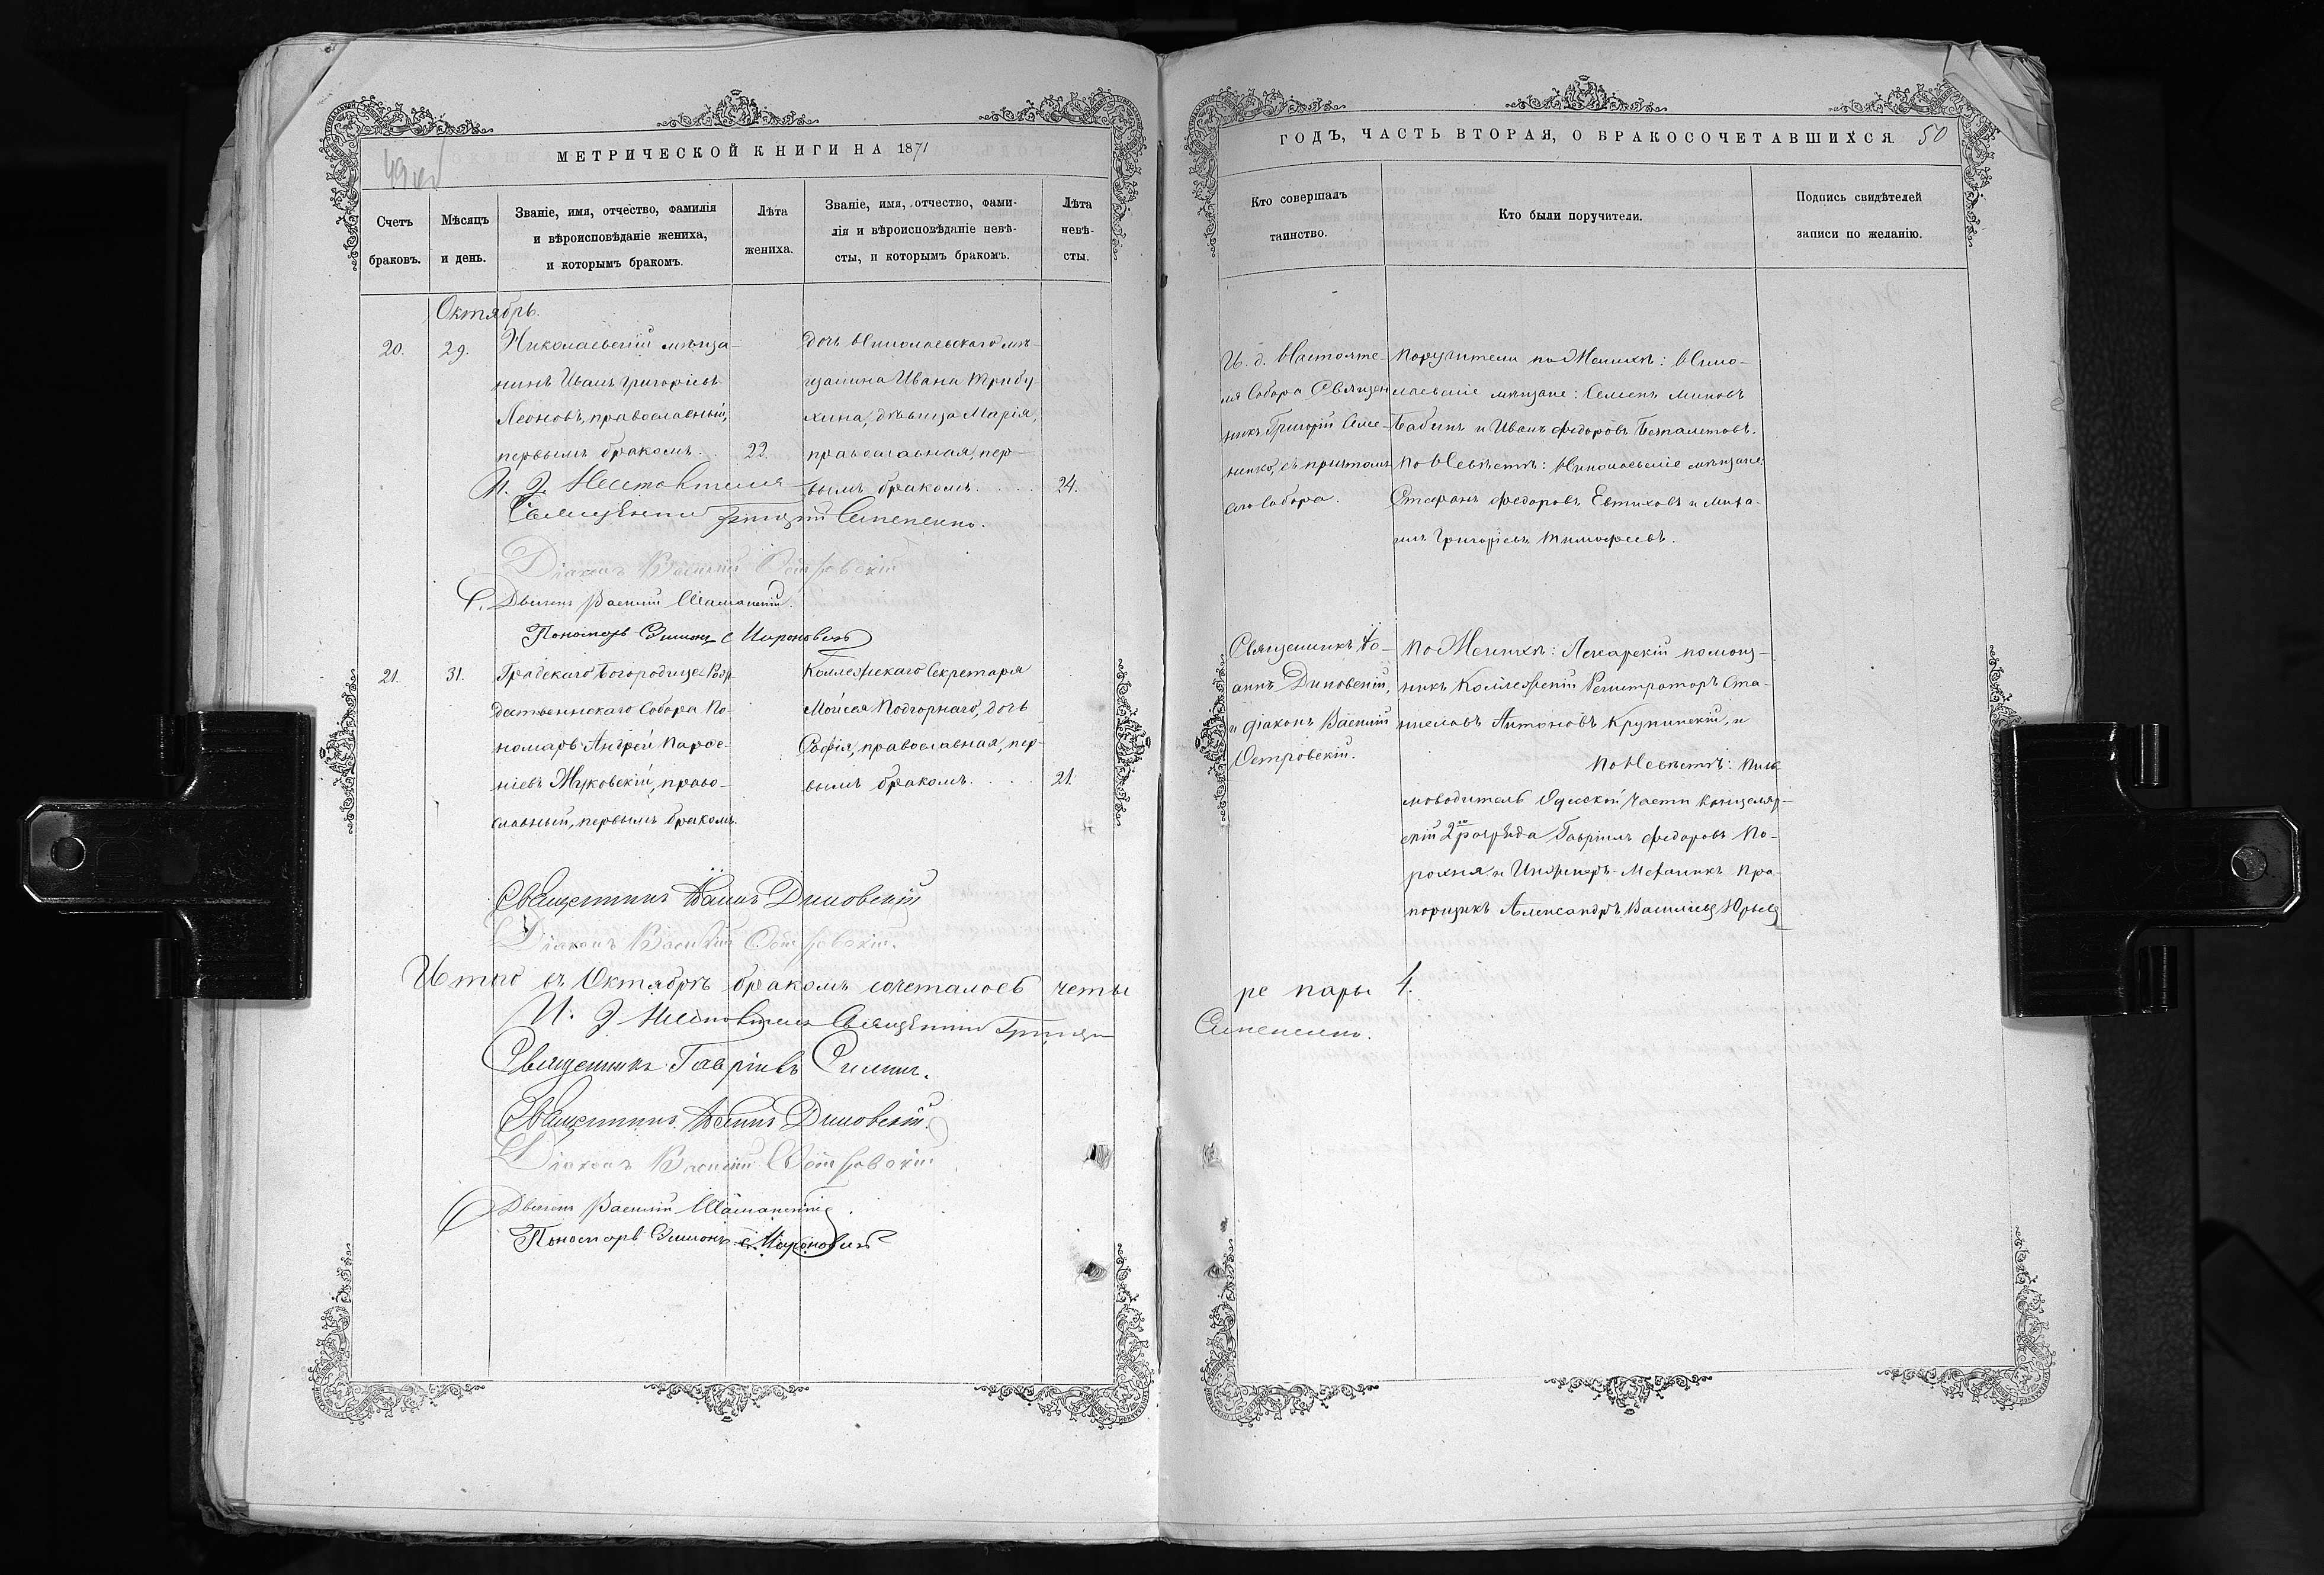 МЕТРИЧЕСКОЙ КНИГИ НА 1871
49 об
Счетъ браковъ.
Мѣсяцъ и день.
Званіе, имя, отчество, фамилія
и вѣроисповѣданіе жениха,
и которымъ бракомъ.
Лѣта
жениха.
Званіе, имя, отчество, фами-
лія и вѣроисповѣданіе невѣ-
сты, и которымъ бракомъ.
Лѣта
невѣ-
сты.
Октябрь.
20.
29.
Николаевскій мѣща-
нинъ Иванъ Григорьевъ
Леоновъ, православный,
первымъ бракомъ. . 22.
дочь Николаевскаго мѣ-
щанина Ивана Трибу
хина, дѣвица Марія,
православная, пер-
вымъ бракомъ. . . . 24.
И. д. Настоятеля
Священникъ Григорій Семененко.
Діаконъ Василій Островскій
Дьячекъ Василій Шаманскій.
Пономарь Симонъ Мироновичъ
21.
31.
Градскаго Богородице Рож-
дественскаго Собора По-
номарь Андрей Парѳе-
ніевъ Жуковскій, право-
славный, первымъ бракомъ.
Коллежскаго Секретаря
Моисея Подгорнаго, дочь
Софія, православная, пер-
вымъ бракомъ. . . . 21.
Священникъ Іоаннъ Диковскій
Діаконъ Василій Островскій.
Итого въ Октябрѣ бракомъ сочеталось четы
И. д. Настоятеля Священникъ Григорій
Священникъ Гавріилъ
Священникъ Іоаннъ Диковскій.
Діаконъ Василій Островскій
Дьячекъ Василій Шаманскій.
Пономарь Симонъ Мироновичъ
ГОДЪ, ЧАСТЬ ВТОРАЯ, О БРАКОСОЧЕТАВШИХСЯ 50
Кто совершалъ
таинство.
Кто были поручители.
Подпись свидѣтелей
записи по желанію.
И. д. Настояте-
ля Собора Священ
никъ Григорій Семе-
ненко, съ причтомъ
сего Собора.
Поручители по Женихѣ: Нико-
лаевскіе мѣщане: Семенъ Миновъ
Бабинъ и Иванъ Федоровъ Безпалетовъ.
По Невѣстѣ: Николаевскіе мѣщане:
Стефанъ Федоровъ Евтиховъ и Миха-
илъ Григорьевъ Тимофеевъ.
Священникъ Іо-
аннъ Диковскій,
и діаконъ Василій
Островскій.
По Женихѣ: Лекарскій помощ-
никъ Коллежскій Регистраторъ Ста-
ниславъ Антоновъ Крупинскій, и
По Невѣстѣ: Пись
моводитель Одесской части Канцеляр-
скій 2го разряда Гавріилъ Федоровъ По-
рохня и Инженеръ-Механикъ Пра-
порщикъ Александръ Васильевъ Юрьевъ
ре пары 4.
Семененко.